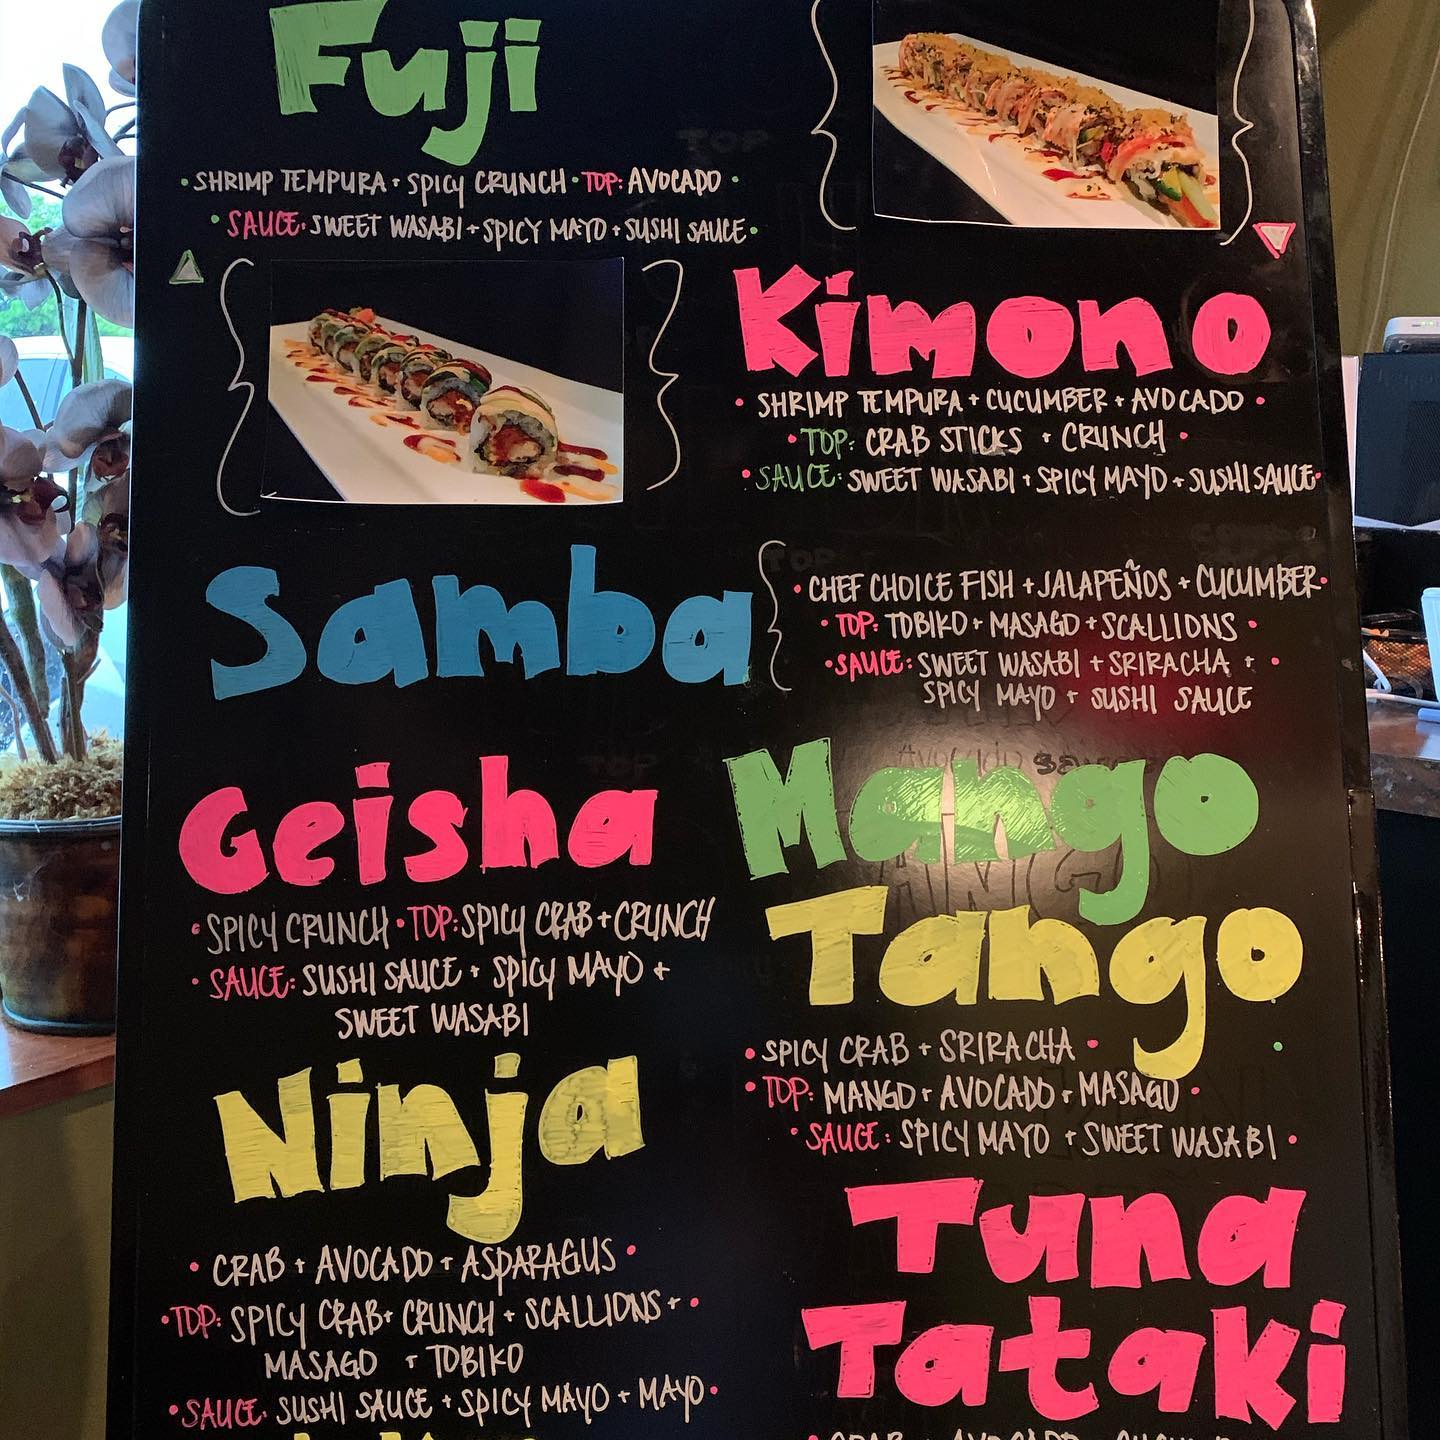 Fuji
• SHRIMP TEMPURA + SPICY CRUNCH • TOP: AVOCADO •
• SAUCE: SWEET WASABI + SPICY MAYO + SUSHI SAUCE •
Kimono
• SHRIMP TEMPURA + CUCUMBER + AVOCADO •
• TOP: CRAB STICKS + CRUNCH •
• SAUCE: SWEET WASABI + SPICY MAYO + SUSHI SAUCE •
Samba
• CHEF CHOICE FISH + JALAPEÑOS + CUCUMBER •
• TOP: TOBIKO + MASAGO + SCALLIONS •
• SAUCE: SWEET WASABI + SRIRACHA + •
SPICY MAYO + SUSHI SAUCE
Geisha
• SPICY CRUNCH • TOP: SPICY CRAB + CRUNCH
• SAUCE: SUSHI SAUCE + SPICY MAYO +
SWEET WASABI
Mango
Tango
• SPICY CRAB + SRIRACHA •
• TOP: MANGO + AVOCADO + MASAGO •
• SAUCE: SPICY MAYO + SWEET WASABI •
Ninja
• CRAB + AVOCADO + ASPARAGUS •
• TOP: SPICY CRAB + CRUNCH + SCALLIONS + •
MASAGO + TOBIKO
• SAUCE: SUSHI SAUCE + SPICY MAYO + MAYO •
Tuna
Tataki
• CRAB + AVOCADO +